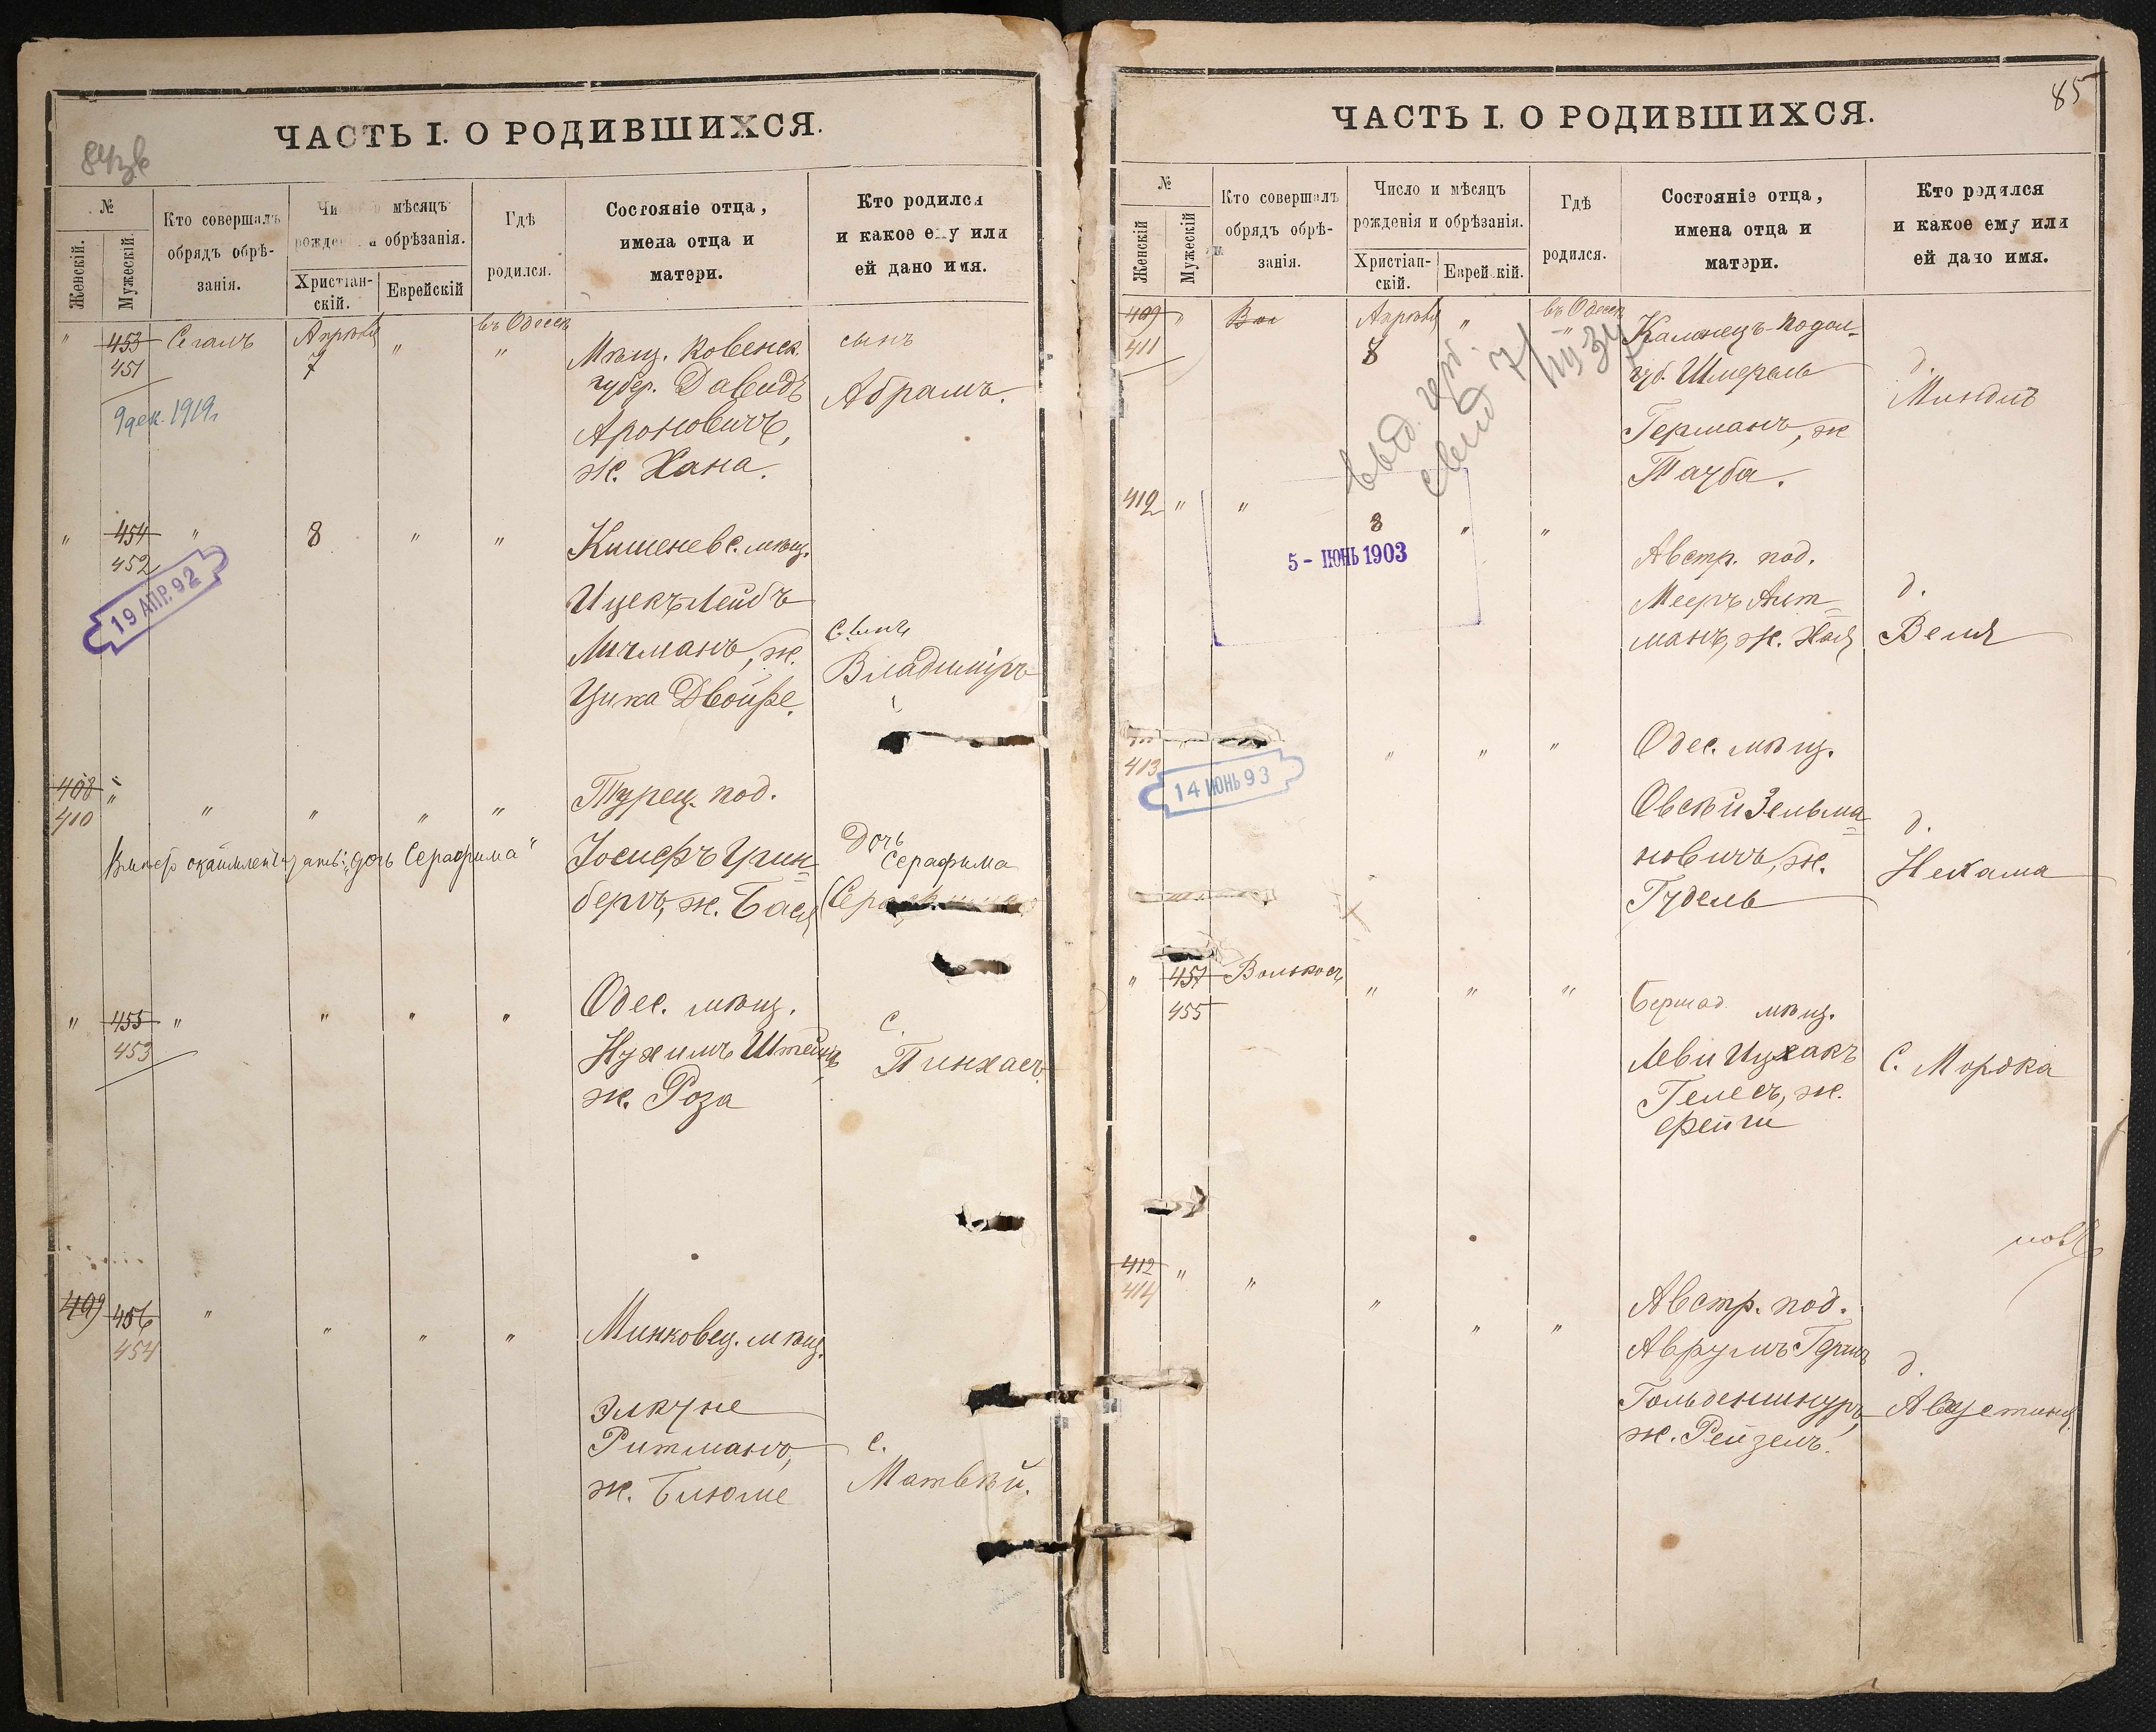 ЧАСТЬ I. О РОДИВШИХСЯ.
№
Женскій.
Мужескій.
Кто совершалъ
обрядъ обрѣ-
занія.
мѣсяцъ
обрѣзанія.
Христіан-
скій.
Еврейскій
Гдѣ
родился.
Состояніе отца,
имена отца и
матери.
Кто родился
и какое ему или
ей дано имя.
" 453 Сегалъ Апрѣля " въ Одессѣ
451 7 "
9 дек. 1919г
Мѣщ. Ковенск.
губер. Давидъ
Ароновичъ,
ж. Хана.
сынъ
Абрамъ.
" 454 " 8 " "
452
19 АПР. 92
Кишеневс. мѣщ.
Ицекъ Лейбъ
Личманъ, ж.
Цика Двойре.
Сынъ
Владиміръ
408 " " " " "
410
Турец. под.
Іосифъ Грин-
бергъ, ж. Бася
Дочь
Серафима
дочь Серафима"
" 455 " " " "
453
Одес. мѣщ.
Нухимъ Штейнъ
ж. Роза
с.
Пинхасъ.
409 456 " " " "
454
Минковец. мѣщ.
Элкуне
Ритманъ,
ж. Блюме
с.
Матвѣй.
85
ЧАСТЬ I. О РОДИВШИХСЯ.
№
Женскій
Мужескій
Кто совершалъ
обрядъ обрѣ-
занія.
Число и мѣсяцъ
рожденія и обрѣзанія.
Христіан-
скій.
Еврейскій.
Гдѣ
родился.
Состояніе отца,
имена отца и
матери.
Кто родился
и какое ему или
ей дано имя.
409 " Вол Апрѣля " въ Одессѣ
411 8 "
выд.
свид 7/III 34
Каменецъ-Подол-
губ. Шмерель
Германъ, ж
Тауба.
д.
Миндль
412 " " 8 " "
5 - ІЮНЬ 1903
Австр. под.
Мееръ Альт-
манъ, ж. Хая
д.
Веля
413 " " "
14 ІЮНЬ 93
Одес. мѣщ.
Овсѣй Зельма-
новичъ, ж.
Гудель
д.
Нехама
" 457 Волькосъ " " "
455
Бершад. мѣщ.
Леви Ицхакъ
Гелесъ, ж.
Фейги
С. Мордка
412 " " " " "
414
Австр. под.
Аврумъ Гершъ
Гольденшнуръ,
ж. Рейзель.
д.
Августина